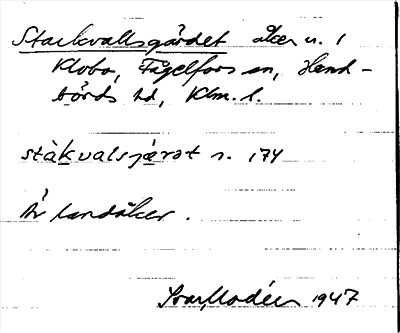 Starkvallsgärdet åker n. 1
Klobo, Fågelfors sn, Hand-
börds hd, Klm. l.
stàkvalsjæ̀rət s. 174
Är landåker.
Ivar Modéer 1947